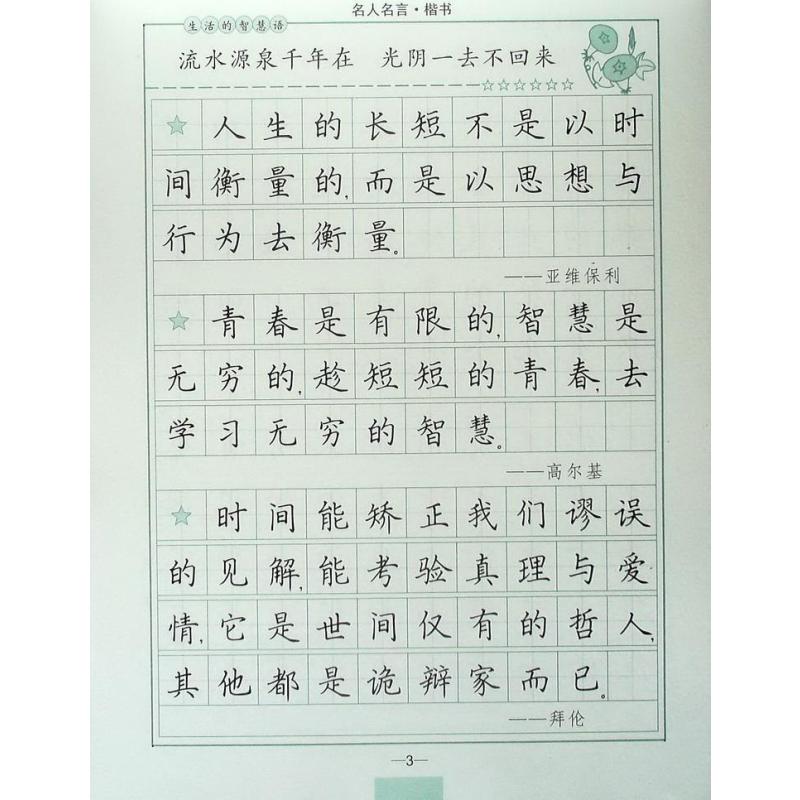 名人名言·楷书
生活的智慧语
流水源泉千年在 光阴一去不回来
人生的长短不是以时
间衡量的,而是以思想与
行为去衡量。
——亚维保利
青春是有限的,智慧是
无穷的,趁短短的青春,去
学习无穷的智慧。
——高尔基
时间能矫正我们谬误
的见解,能考验真理与爱
情,它是世间仅有的哲人,
其他都是诡辩家而已。
——拜伦
—3—